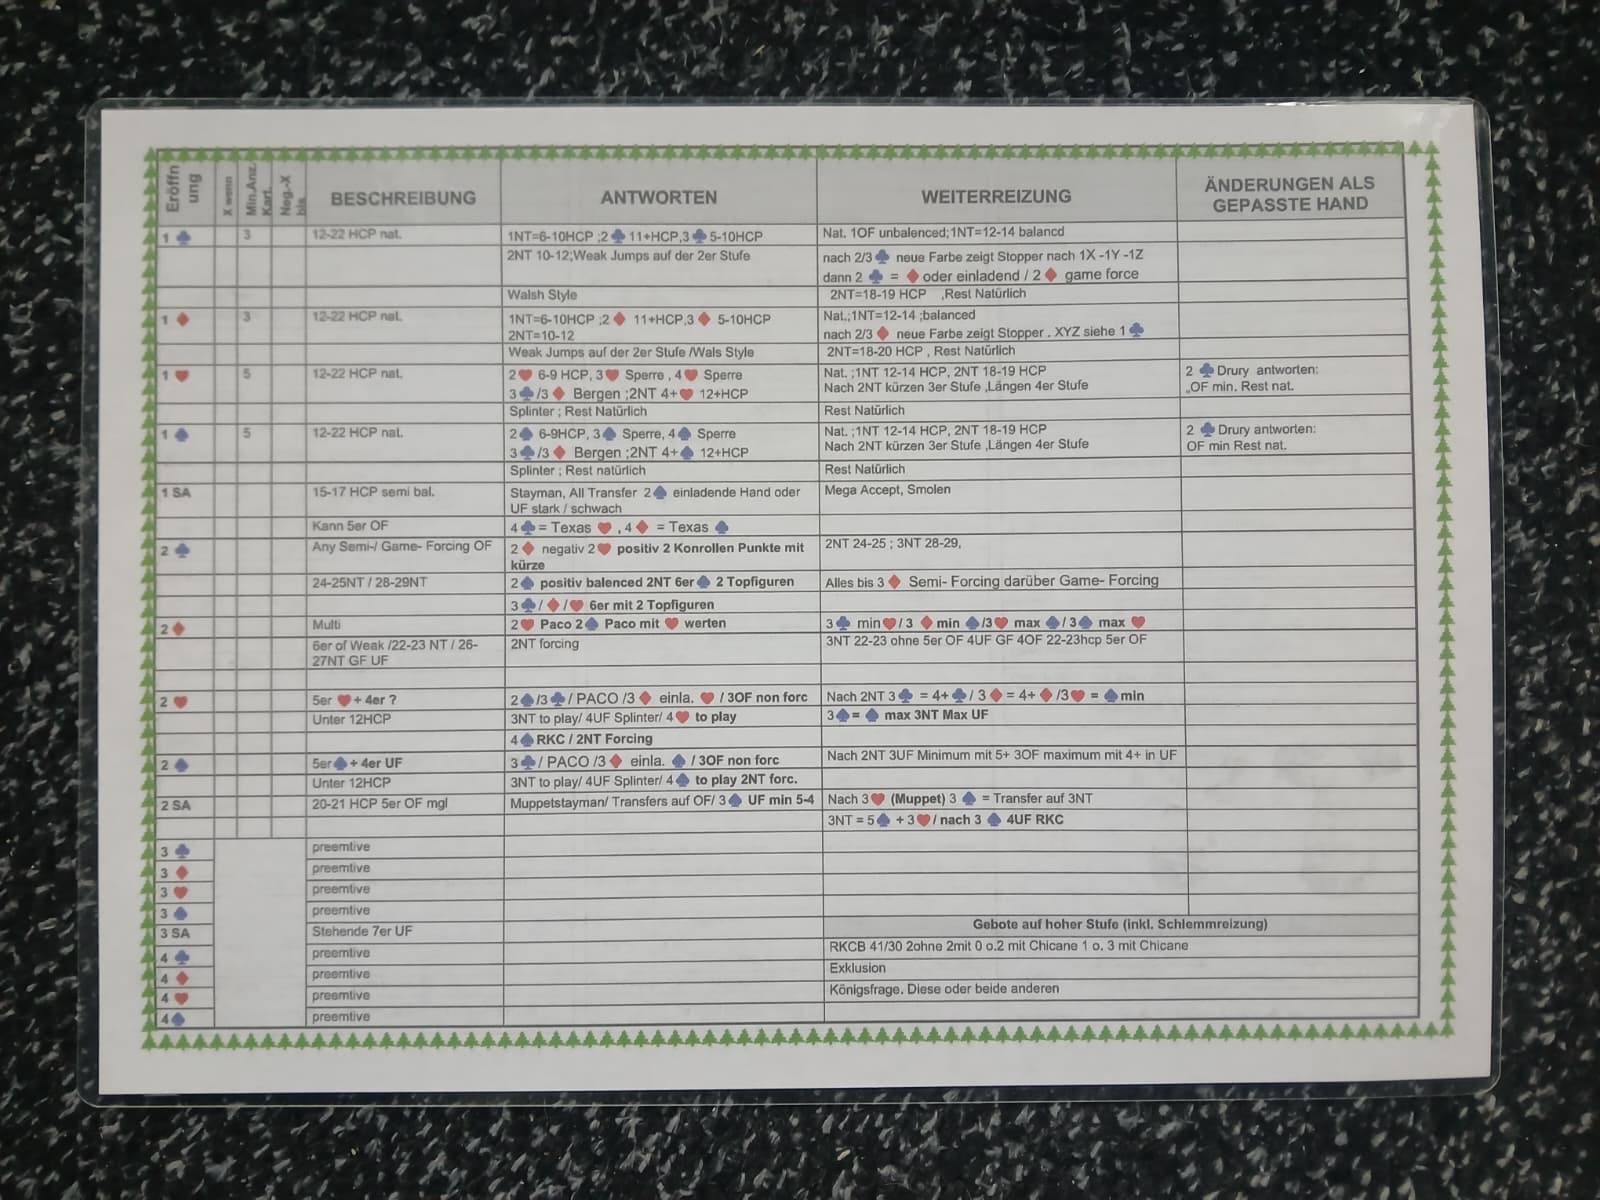 Eröffn ung X wenn Min.Anz. Kart. Neg.-X bis BESCHREIBUNG ANTWORTEN WEITERREIZUNG ÄNDERUNGEN ALS GEPASSTE HAND
1 ♣ 3 12-22 HCP nat. 1NT=6-10HCP ;2 ♣ 11+HCP,3 ♣ 5-10HCP Nat. 1OF unbalenced;1NT=12-14 balancd
2NT 10-12;Weak Jumps auf der 2er Stufe nach 2/3 ♣ neue Farbe zeigt Stopper nach 1X -1Y -1Z
dann 2 ♣ = ♦ oder einladend / 2 ♦ game force
Walsh Style 2NT=18-19 HCP ,Rest Natürlich
1 ♦ 3 12-22 HCP nat. 1NT=6-10HCP ;2 ♦ 11+HCP,3 ♦ 5-10HCP Nat.;1NT=12-14 ;balanced
2NT=10-12 nach 2/3 ♦ neue Farbe zeigt Stopper . XYZ siehe 1 ♣
Weak Jumps auf der 2er Stufe /Wals Style 2NT=18-20 HCP , Rest Natürlich
1 ♥ 5 12-22 HCP nat. 2 ♥ 6-9 HCP, 3 ♥ Sperre , 4 ♥ Sperre Nat. ;1NT 12-14 HCP, 2NT 18-19 HCP 2 ♣ Drury antworten:
3 ♣ /3 ♦ Bergen ;2NT 4+ ♥ 12+HCP Nach 2NT kürzen 3er Stufe ,Längen 4er Stufe „OF min. Rest nat.
Splinter ; Rest Natürlich Rest Natürlich
1 ♠ 5 12-22 HCP nat. 2 ♠ 6-9HCP, 3 ♠ Sperre, 4 ♠ Sperre Nat. ;1NT 12-14 HCP, 2NT 18-19 HCP 2 ♣ Drury antworten:
3 ♣ /3 ♦ Bergen ;2NT 4+ ♠ 12+HCP Nach 2NT kürzen 3er Stufe ,Längen 4er Stufe OF min Rest nat.
Splinter ; Rest natürlich Rest Natürlich
1 SA 15-17 HCP semi bal. Stayman, All Transfer 2 ♠ einladende Hand oder Mega Accept, Smolen
UF stark / schwach
Kann 5er OF 4 ♣ = Texas ♥ , 4 ♦ = Texas ♠
2 ♣ Any Semi-/ Game- Forcing OF 2 ♦ negativ 2 ♥ positiv 2 Konrollen Punkte mit 2NT 24-25 ; 3NT 28-29,
kürze
24-25NT / 28-29NT 2 ♠ positiv balenced 2NT 6er ♠ 2 Topfiguren Alles bis 3 ♦ Semi- Forcing darüber Game- Forcing
3 ♣ / ♦ / ♥ 6er mit 2 Topfiguren
2 ♦ Multi 2 ♥ Paco 2 ♠ Paco mit ♥ werten 3 ♣ min ♥ / 3 ♦ min ♠ /3 ♥ max ♠ / 3 ♠ max ♥
6er of Weak /22-23 NT / 26- 2NT forcing 3NT 22-23 ohne 5er OF 4UF GF 4OF 22-23hcp 5er OF
27NT GF UF
2 ♥ 5er ♥ + 4er ? 2 ♠ /3 ♣ / PACO /3 ♦ einla. ♥ / 3OF non forc Nach 2NT 3 ♣ = 4+ ♣ / 3 ♦ = 4+ ♦ /3 ♥ = ♠ min
Unter 12HCP 3NT to play/ 4UF Splinter/ 4 ♥ to play 3 ♠ = ♠ max 3NT Max UF
4 ♠ RKC / 2NT Forcing
2 ♠ 5er ♠ + 4er UF 3 ♣ / PACO /3 ♦ einla. ♠ / 3OF non forc Nach 2NT 3UF Minimum mit 5+ 3OF maximum mit 4+ in UF
Unter 12HCP 3NT to play/ 4UF Splinter/ 4 ♠ to play 2NT forc.
2 SA 20-21 HCP 5er OF mgl Muppelstayman/ Transfers auf OF/ 3 ♠ UF min 5-4 Nach 3 ♥ (Muppet) 3 ♠ = Transfer auf 3NT
3NT = 5 ♠ + 3 ♥ / nach 3 ♠ 4UF RKC
3 ♣ preemtive
3 ♦ preemtive
3 ♥ preemtive
3 ♠ preemtive
3 SA Stehende 7er UF Gebote auf hoher Stufe (inkl. Schlemmreizung)
4 ♣ preemtive RKCB 41/30 2ohne 2mit 0 o.2 mit Chicane 1 o. 3 mit Chicane
4 ♦ preemtive Exklusion
4 ♥ preemtive Königsfrage. Diese oder beide anderen
4 ♠ preemtive